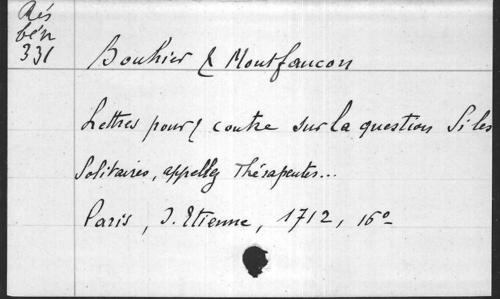 Rés
bén
331
Bouhier & Montfaucon
Lettres pour & contre sur la question Si les
Solitaires, appelles Thérapeutes...
Paris, J. Etienne, 1712, 16º